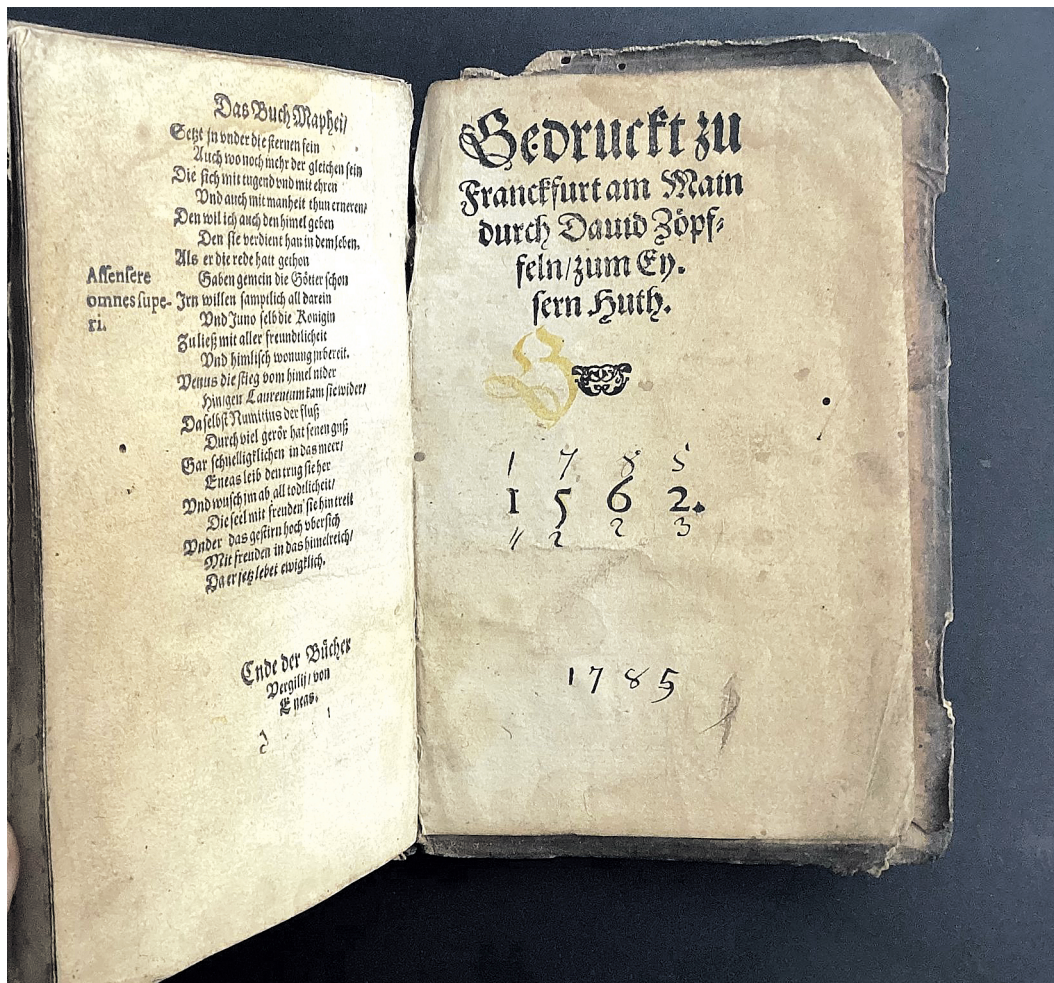 Das Buch Maphei/
Setzt jn vnder die sternen fein
Auch wo noch mehr der gleichen sein
Die sich mit tugend vnd mit ehren
Vnd auch mit manheit thun erneren/
Den wil ich auch den himel geben
Den sie verdient han in dem leben.
Als er die rede hatt gethon
Gaben gemein die Götter schon
Assensere
omnes supe-
ri.
Jrn willen samptlich all darein
Vnd Juno selb die Konigin
Zu ließ mit aller freundtlicheit
Vnd himlisch wonung jnbereit.
Venus die stieg vom himel nider
Hin gen Laurentum kam sie wider/
Daselbst Numitius der fluß
Durch viel gerör hat senen guß
Gar schnelligklichen in das meer/
Eneas leib den trug sie her
Vnd wusch im ab all todtlicheit/
Die seel mit freuden sie hin treit
Vnder das gestirn hoch vbersich
Mit freuden in das himelreich/
Da er jetz lebet ewigklich.
Ende der Bücher
Vergilij/von
Eneas.
Gedruckt zu
Franckfurt am Main
durch Dauid Zöpf-
feln/zum Ey-
sern Huth.
1785
1562.
223
1785